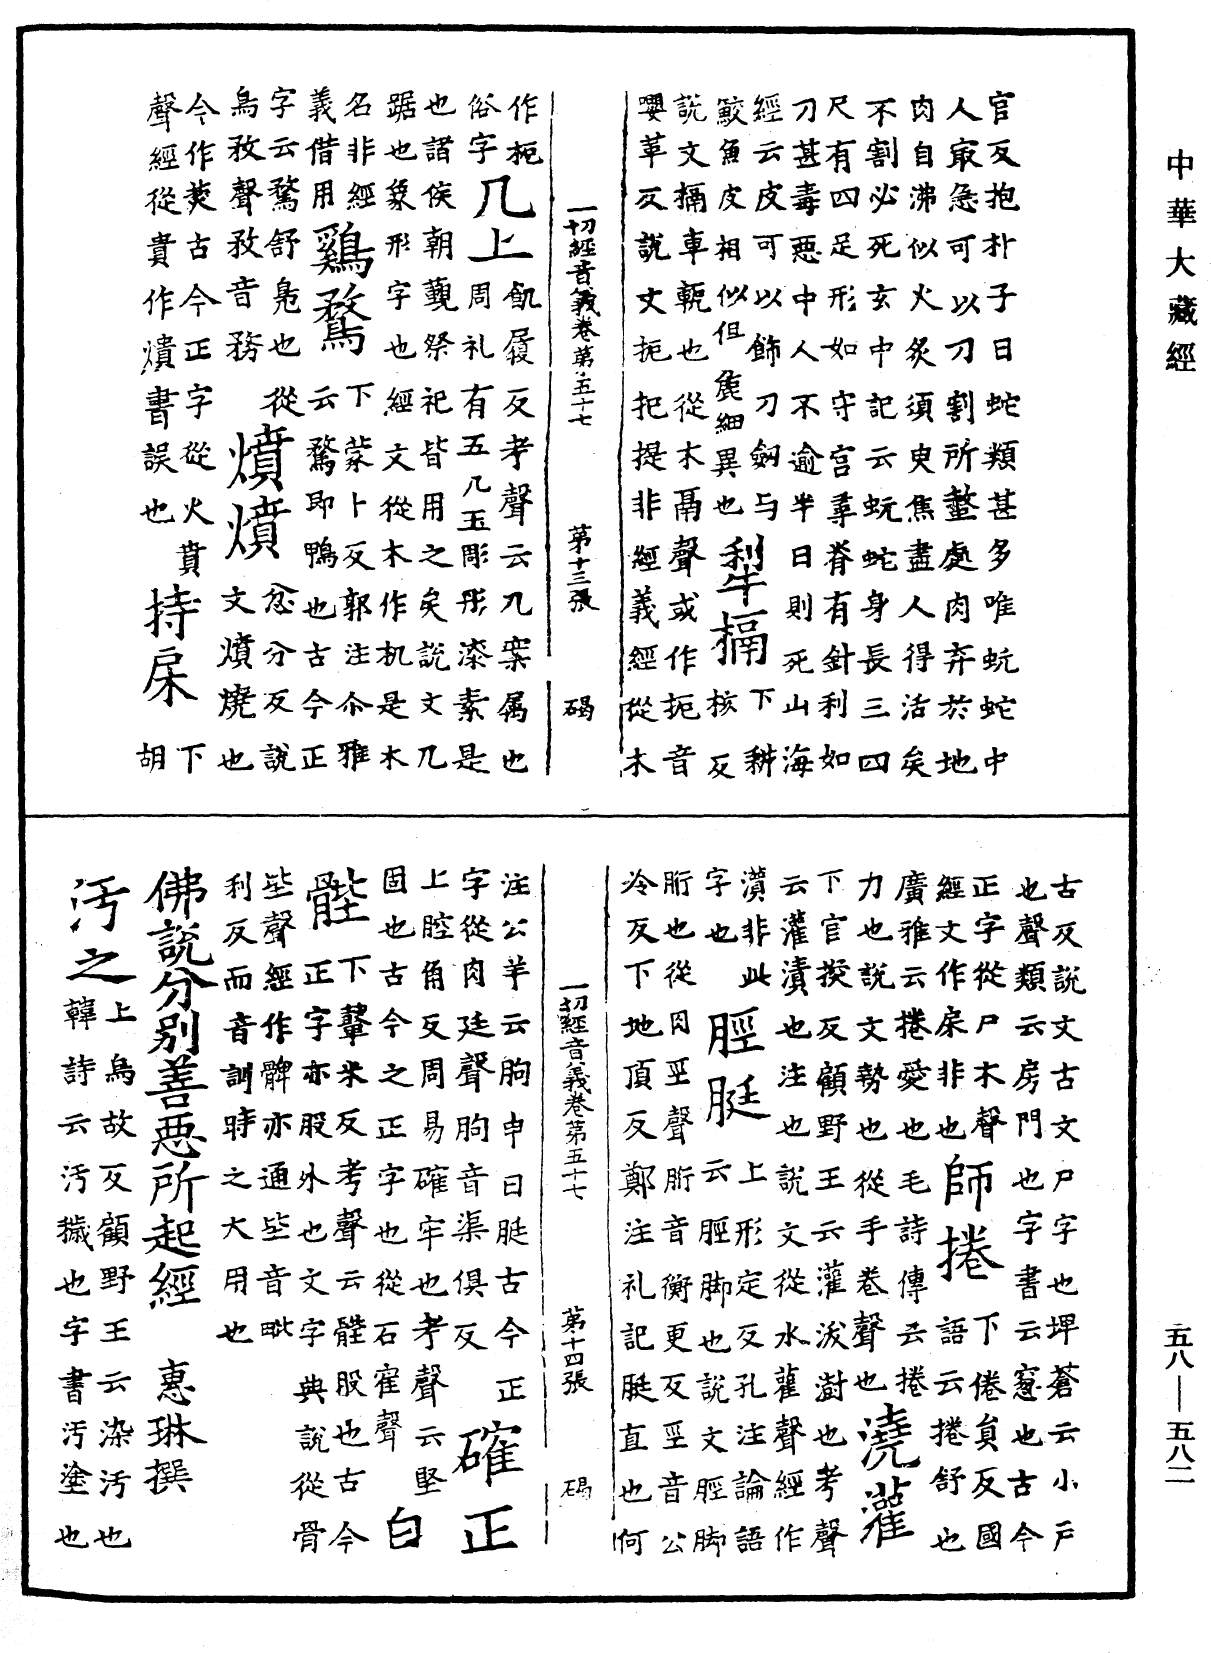 中華大藏經
官反抱朴子曰蛇類甚多唯蚖蛇中
人㝡急可以刀割所螫處肉弃於地
肉自沸似火炙須臾焦盡人得活矣
不割必死玄中記云蚖蛇身長三四
尺有四足形如守宮䔍脊有針利如
刀甚毒惡中人不逾半日則死山海
經云皮可以飾刀劒与利牛搹下耕
鮫魚皮相似但麁細異也核反
說文搹車軶也從木鬲聲或作扼音
嚶革反說文扼把提非經義經從木
一切經音義卷第五十七 第十三張 碣
作枙几上飢履反考聲云几案属也
俗字周礼有五几玉彫彤漆素是
也諸侯朝覲祭祀皆用之矣說文几
踞也象形字也經文從木作机是木
名非經義借用雞鶩下蒙卜反郭注尒雅
云鶩即鴨也古今正
字云鶩舒鳧也從
鳥敄聲敄音務燌燌忿分反說
文燌燒也
今作焚古今正字從火賁
聲經從貴作燌書誤也持𡱝下胡
古反說文古文户字也埤蒼云小户
也聲類云房門也字書云窓也古今
正字從尸木聲師捲下倦負反國
經文作𡱝非也語云捲舒也
廣雅云捲愛也毛詩傳云捲
力也說文勢也從手卷聲也澆灌
下官換反顧野王云灌沃澍也考聲
云灌漬也注也說文從水雚聲經作
瀵非此脛脡上形定反孔注論語
字也云脛脚也說文脛脚
胻也從肉巠聲胻音衡更反巠音公
冷反下地頂反鄭注礼記脡直也何
一切經音義卷第五十七 第十四張 碣
注公羊云朐申曰脡古今正
字從肉廷聲朐音渠俱反確正
上腔角反周易確牢也考聲云堅
固也古今之正字也從石隺聲白
䏶下鞞米反考聲云髀股也古今
正字亦股外也文字典說從骨
坒聲經作髀亦通坒音毗
利反而音訓時之大用也
佛說分别善惡所起經 惠琳撰
汚之上烏故反顧野王云染汚也
韓詩云汚穢也字書汚塗也
五八—五八二